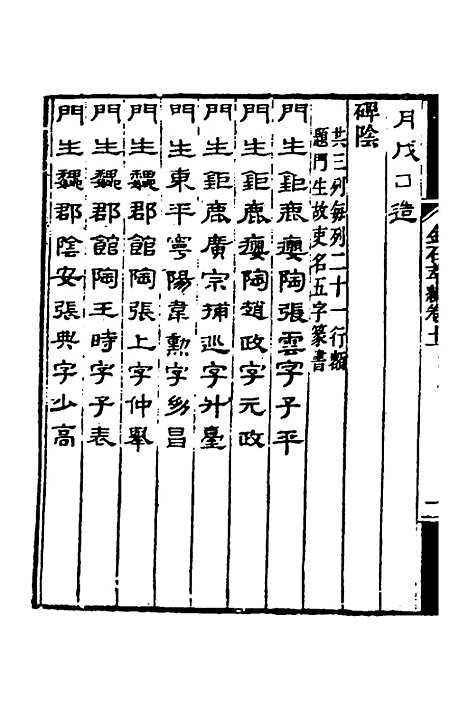 月戊□造
碑陰
共三列每列二十一行額
題門生故吏名五字篆書
門生鉅鹿癭陶張雲字子平
門生鉅鹿癭陶趙政字元政
門生鉅鹿廣宗捕巡字升臺
門生東平寧陽韋勳字幼昌
門生魏郡館陶張上字仲舉
門生魏郡館陶王時字子表
門生魏郡陰安張典字少高
金石萃編卷十一